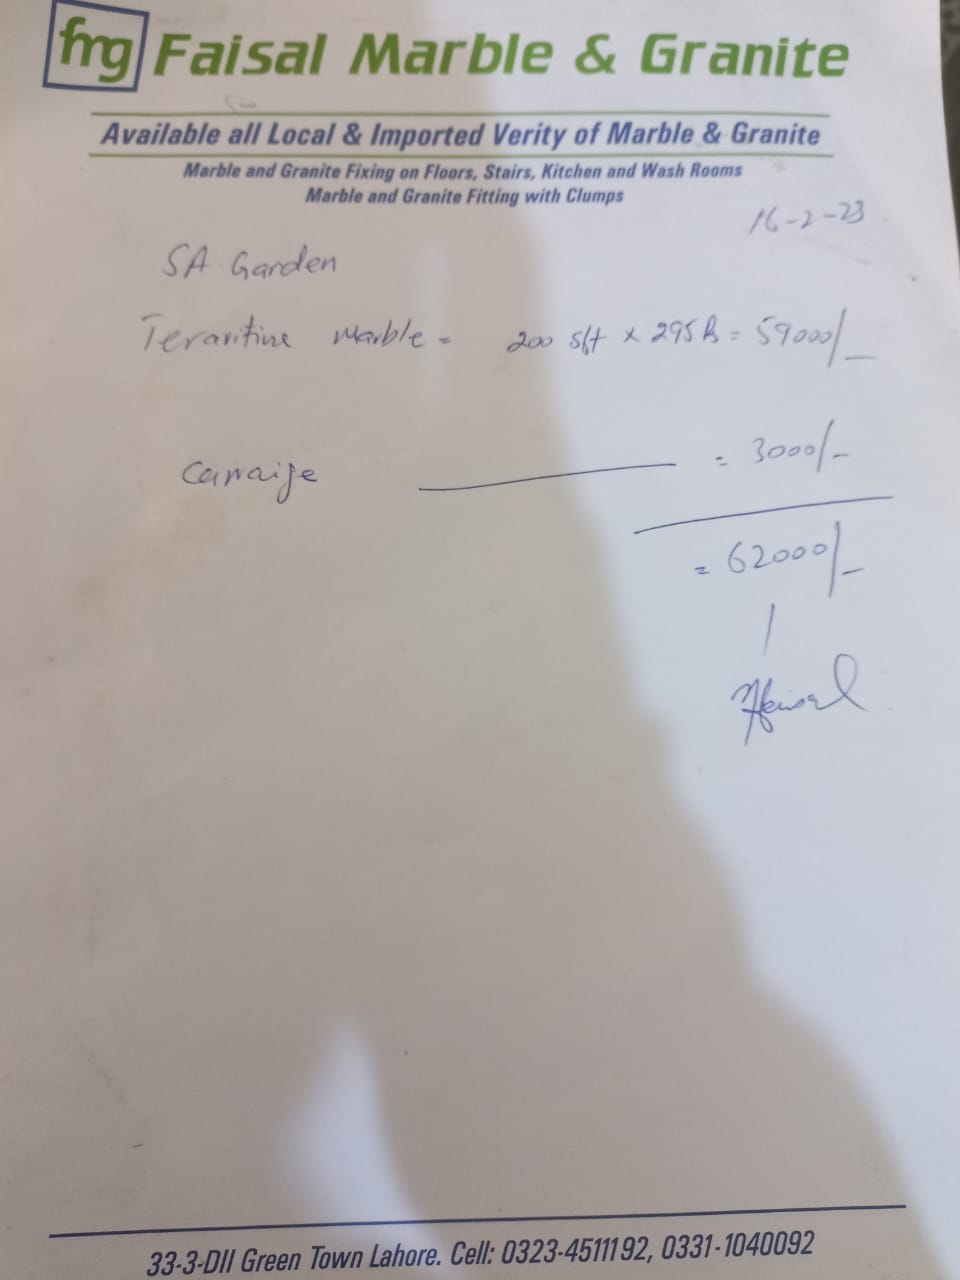 fmg Faisal Marble & Granite
Available all Local & Imported Verity of Marble & Granite
Marble and Granite Fixing on Floors, Stairs, Kitchen and Wash Rooms
Marble and Granite Fitting with Clumps
16-2-23
SA Garden
Teravitine Marble = 200 sft x 295 = 59000/-
Carraige = 3000/-
= 62000/-
33-3-DII Green Town Lahore. Cell: 0323-4511192, 0331-1040092